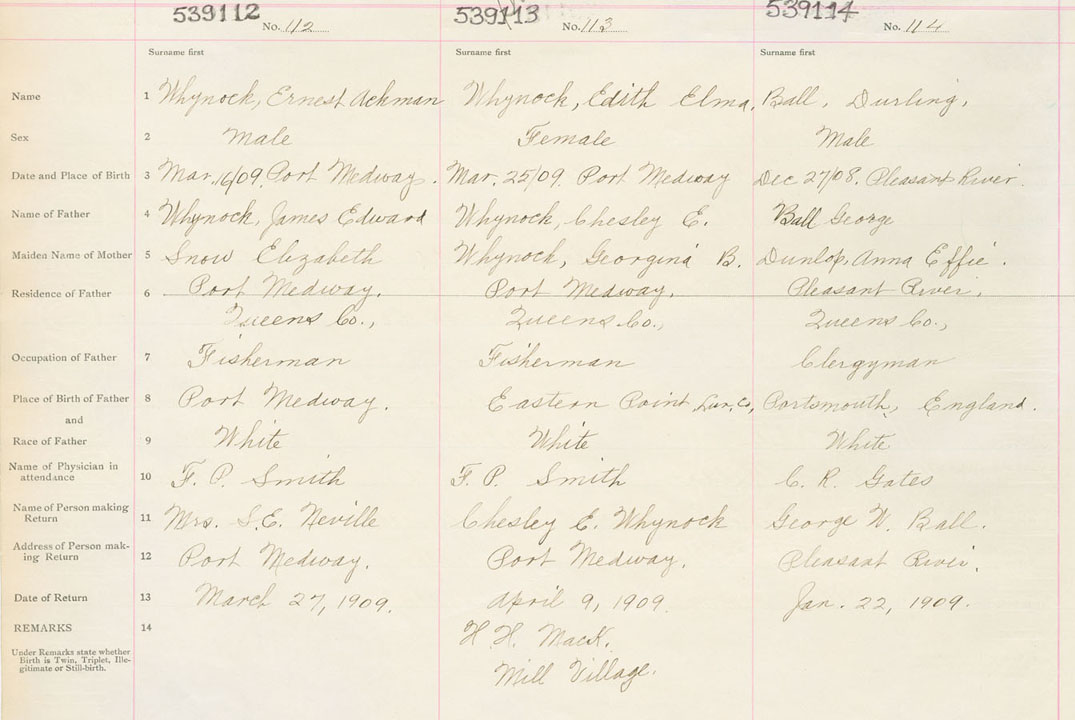 539112 539113 539114
No. 112 No. 113 No. 114
Surname first Surname first Surname first
Name 1 Whynock, Ernest Ackman Whynock, Edith Elma, Ball, Durling,
Sex 2 Male Female Male
Date and Place of Birth 3 Mar. 16/09. Port Medway. Mar. 25/09. Port Medway Dec 27/08. Pleasant River.
Name of Father 4 Whynock, James Edward Whynock, Chesley E. Ball George
Maiden Name of Mother 5 Snow Elizabeth Whynock, Georgina B. Dunlop, Anna Effie.
Residence of Father 6 Port Medway. Port Medway. Pleasant River,
Queens Co., Queens Co., Queens Co.,
Occupation of Father 7 Fisherman Fisherman Clergyman
Place of Birth of Father 8 Port Medway. Eastern Point Lun. Co, Portsmouth, England.
and
Race of Father 9 White White White
Name of Physician in
attendance 10 F. P. Smith F. P. Smith C. R. Gates
Name of Person making
Return 11 Mrs. S. E. Neville Chesley E. Whynock George W. Ball.
Address of Person mak-
ing Return 12 Port Medway. Port Medway. Pleasant River.
Date of Return 13 March 27, 1909. April 9, 1909. Jan. 22, 1909.
REMARKS 14 H. H. Mack.
Under Remarks state whether
Birth is Twin, Triplet, Ille-
gitimate or Still-birth.
Mill Village.